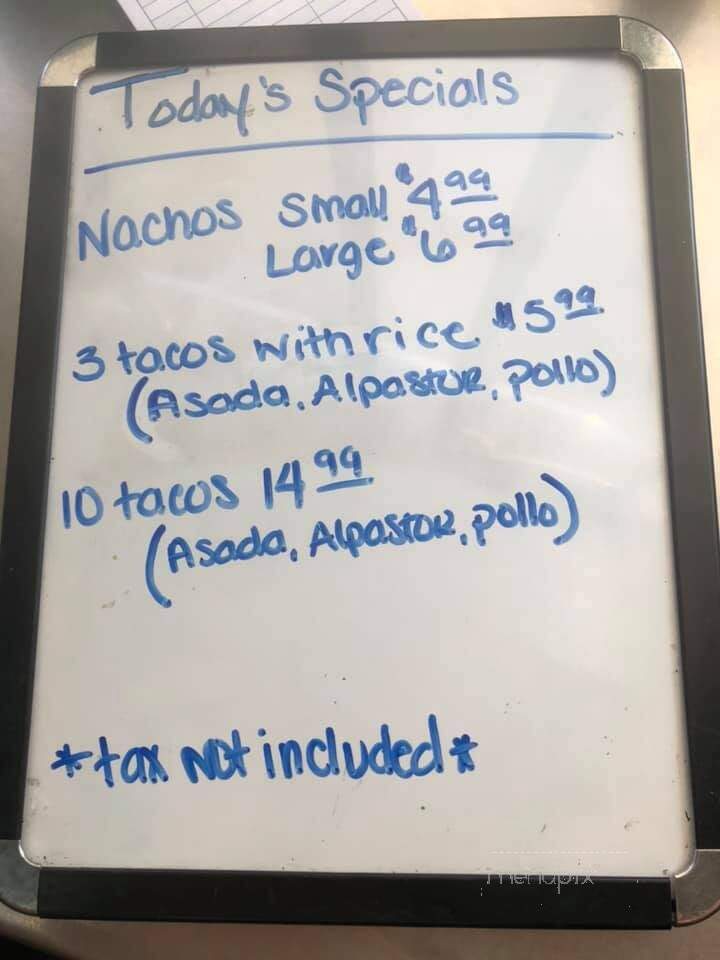 Today's Specials
Nachos Small $4.99
Large $6.99
3 tacos with rice $5.99
(Asada, Alpastor, pollo)
10 tacos 14.99
(Asada, Alpastor, pollo)
*tax Not included*
menupix